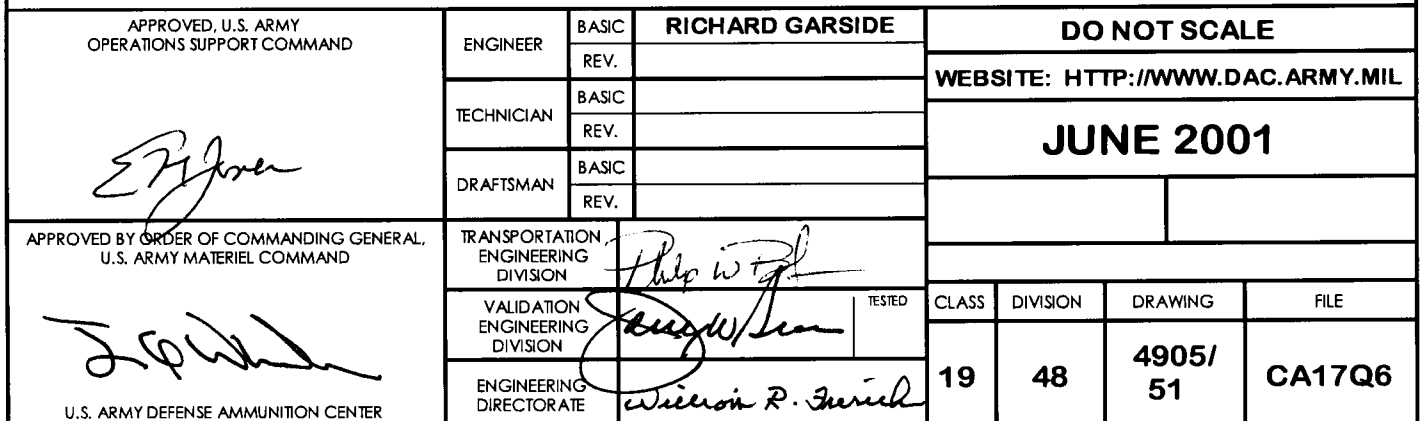 APPROVED, U.S. ARMY
OPERATIONS SUPPORT COMMAND
APPROVED BY ORDER OF COMMANDING GENERAL,
U.S. ARMY MATERIEL COMMAND
U.S. ARMY DEFENSE AMMUNITION CENTER
ENGINEER
BASIC
RICHARD GARSIDE
REV.
TECHNICIAN
BASIC
REV.
DRAFTSMAN
BASIC
REV.
TRANSPORTATION
ENGINEERING
DIVISION
VALIDATION
ENGINEERING
DIVISION
TESTED
ENGINEERING
DIRECTORATE
William R.
DO NOT SCALE
WEBSITE: HTTP://WWW.DAC.ARMY.MIL
JUNE 2001
CLASS
DIVISION
DRAWING
FILE
19
48
4905/
51
CA17Q6